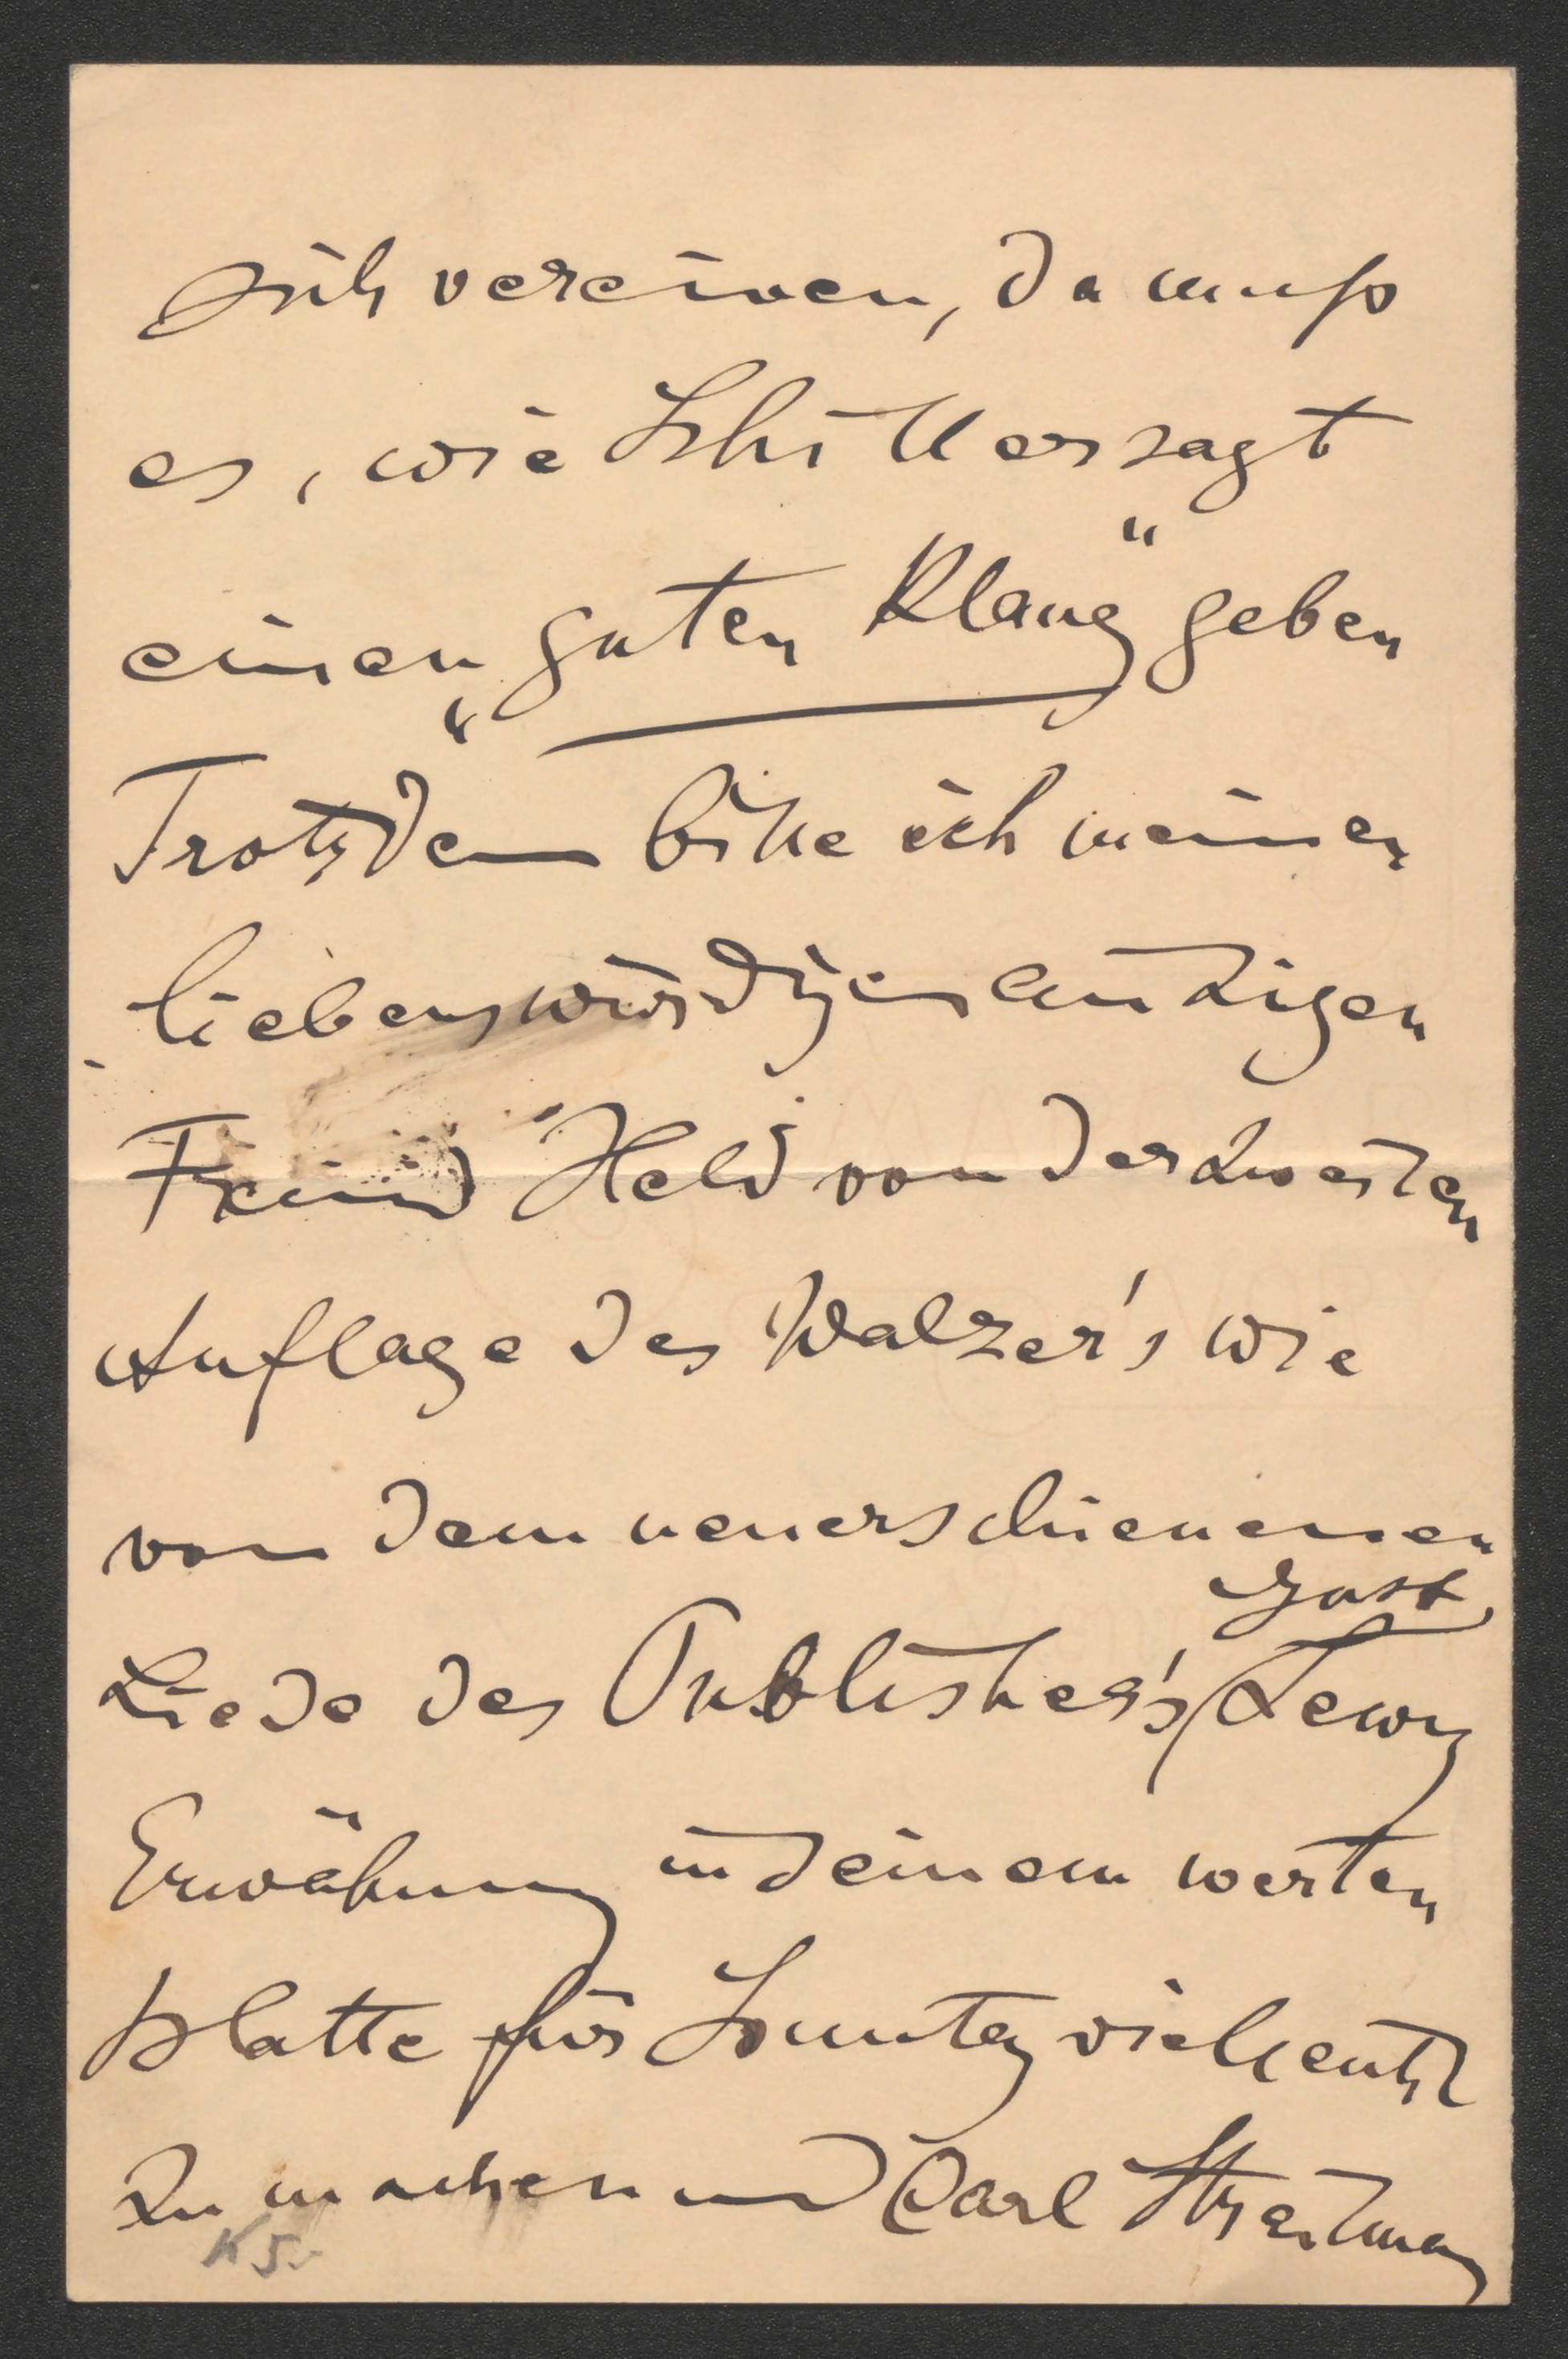 sich vereinen, da muß
es, wie Schiller sagt
einen „guten Klang“ geben
Trotzdem bitte ich meinen
liebenswürdigen einzigen
Freund Held von der zweiten
Auflage des Walzer's wie
von dem neuerschienenen
Liede des Publisher's Gust. Lewy
Erwähnung in deinem werten
Blatte für Sonntag vielleicht
zu machen und Carl Streitmann
K 5.